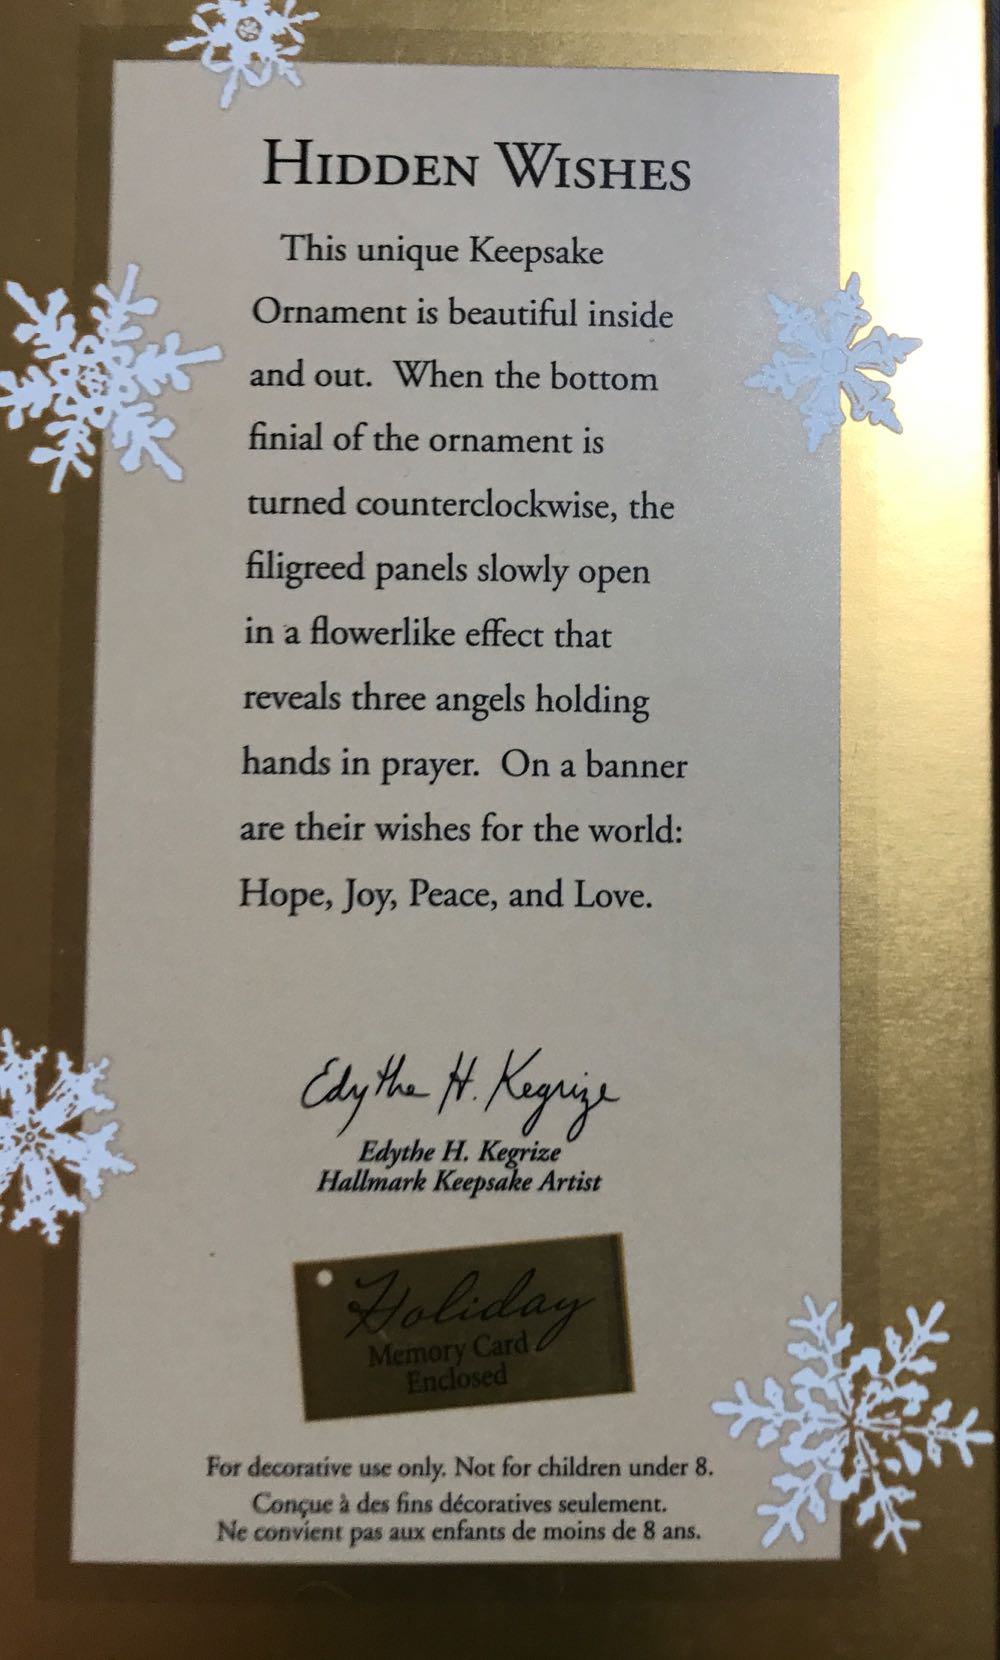 HIDDEN WISHES
This unique Keepsake
Ornament is beautiful inside
and out. When the bottom
finial of the ornament is
turned counterclockwise, the
filigreed panels slowly open
in a flowerlike effect that
reveals three angels holding
hands in prayer. On a banner
are their wishes for the world:
Hope, Joy, Peace, and Love.
Edythe H. Kegrize
Edythe H. Kegrize
Hallmark Keepsake Artist
Holiday
Memory Card
Enclosed
For decorative use only. Not for children under 8.
Conçue à des fins décoratives seulement.
Ne convient pas aux enfants de moins de 8 ans.